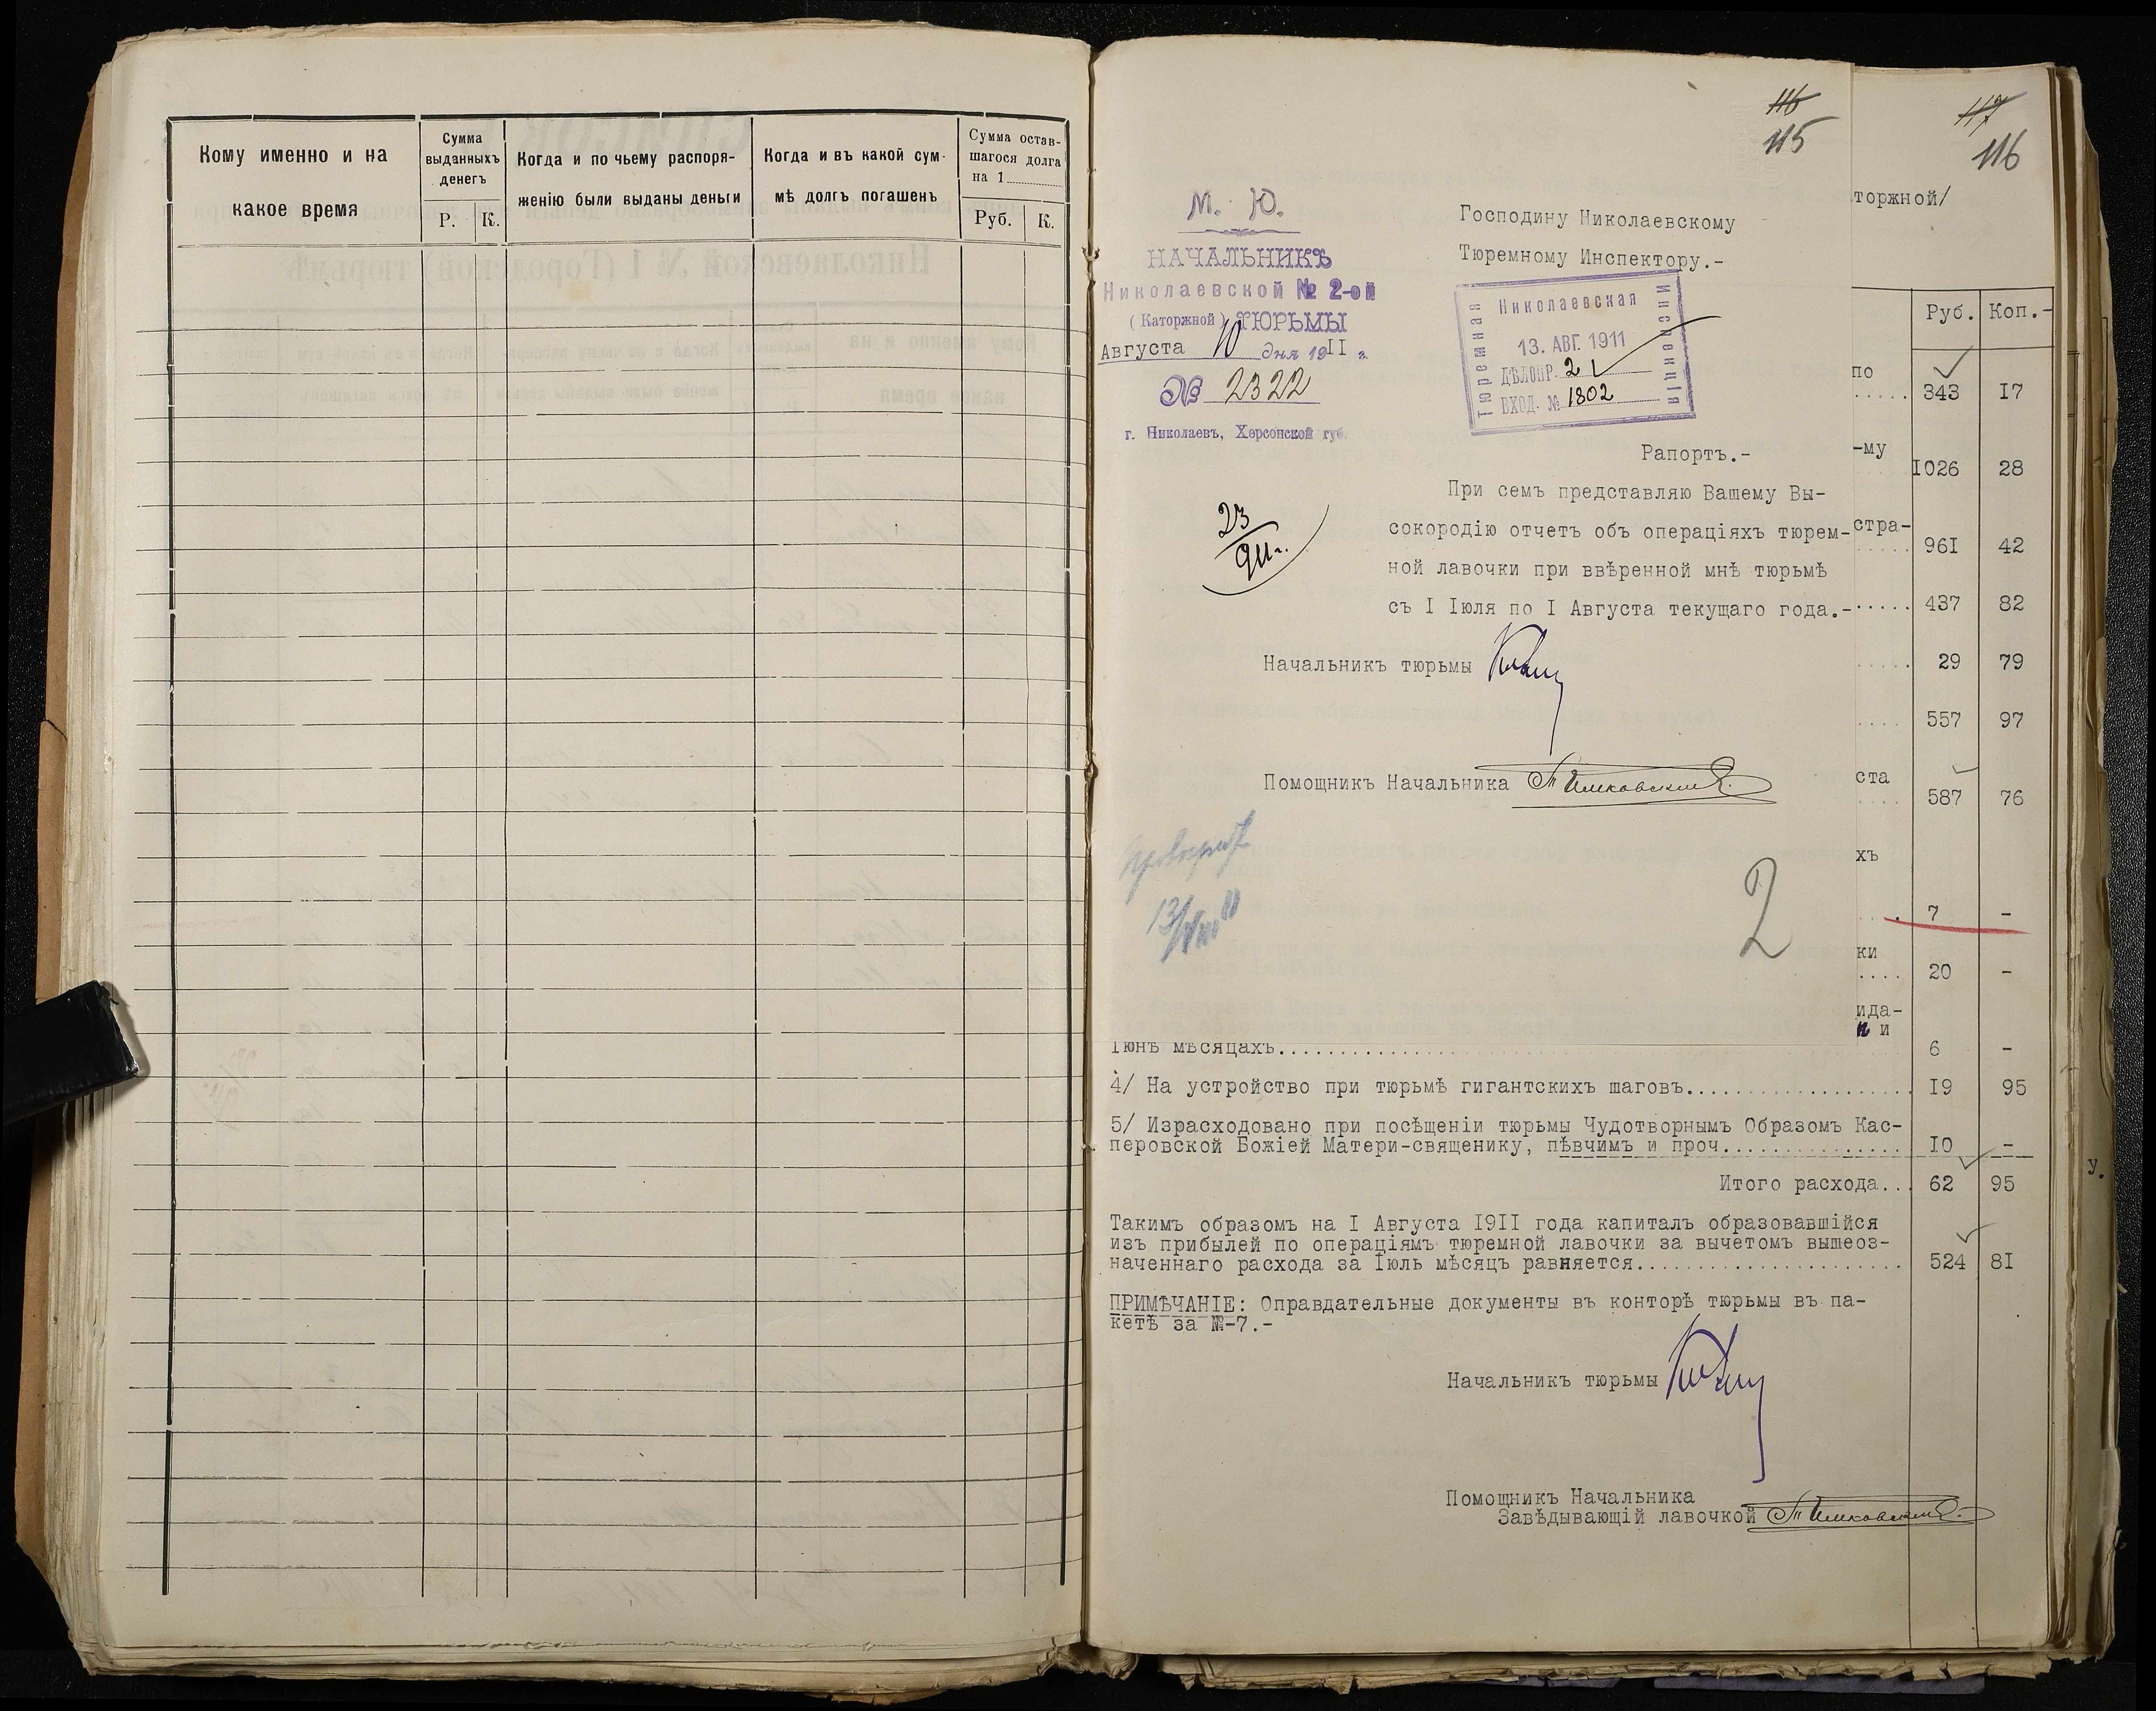 Кому именно и на
какое время
Сумма
выданныхъ
денегъ
Р. К.
Когда и по чьему распоря-
женію были выданы деньги
Когда и въ какой сум-
мѣ долгъ погашенъ
Сумма остав-
шагося долга
на 1
Руб. К.
116
115
М. Ю.
НАЧАЛЬНИКЪ
Николаевской № 2-ой
(Каторжной) ТЮРЬМЫ
Августа 10 дня 1911 г.
№ 2322
г. Николаевъ, Херсонской губ.
Господину Николаевскому
Тюремному Инспектору.-
Николаевская
Тюремная
Инспекція
13. АВГ. 1911
ДѢЛОПР. 2
ВХОД. № 1802
Рапортъ.-
При семъ представляю Вашему Вы-
сокородію отчетъ объ операціяхъ тюрем-
ной лавочки при ввѣренной мнѣ тюрьмѣ
съ I Іюля по I Августа текущаго года.-
23
911г.
Начальникъ тюрьмы
Помощникъ Начальника
13/VIII 11
2
117
116
торжной/
Руб. Коп.-
по
..... 343 17
-му
1026 28
стра-
..... 961 42
..... 437 82
..... 29 79
.... 557 97
ста
.... 587 76
хъ
.... 7 -
ки
.... 20 -
ида-
и
Іюнѣ мѣсяцахъ.......... 6 -
4/ На устройство при тюрьмѣ гигантскихъ шаговъ.................... 19 95
5/ Израсходовано при посѣщеніи тюрьмы Чудотворнымъ Образомъ Кас-
перовской Божіей Матери-священику, пѣвчимъ и проч................ 10 -
Итого расхода... 62 95
Такимъ образомъ на I Августа I9II года капиталъ образовавшійся
изъ прибылей по операціямъ тюремной лавочки за вычетомъ вышеоз-
наченнаго расхода за Іюль мѣсяцъ равняется....................... 524 81
ПРИМѢЧАНІЕ: Оправдательные документы въ конторѣ тюрьмы въ па-
кетѣ за №-7.-
Начальникъ тюрьмы
Помощникъ Начальника
Завѣдывающій лавочкой
у.